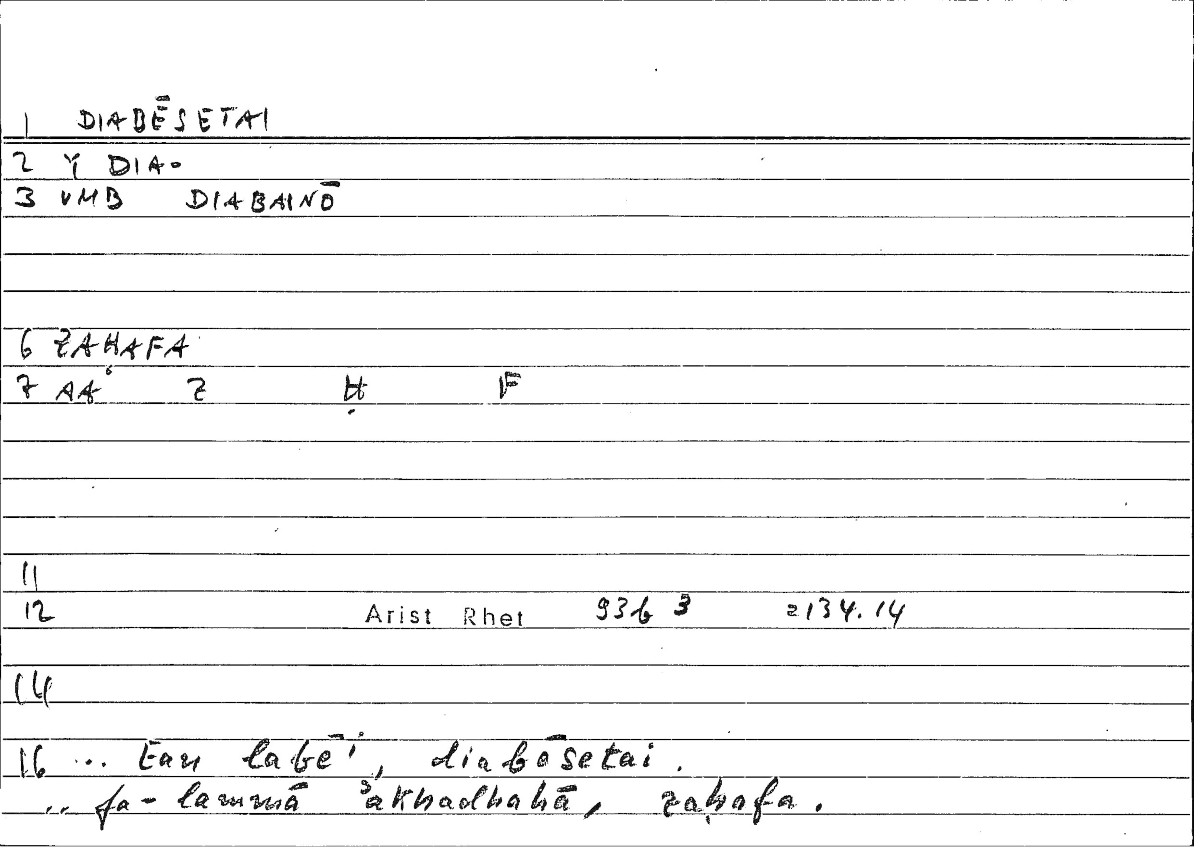 1 DIABĒSETAI
2 Y DIA-
3 VMB DIABAINŌ
6 ZAḤAFA
7 AAʿ Z Ḥ F
11
12 Arist Rhet 93b 3 =134.14
14
16 ... Ean labēi, diabēsetai.
.. fa-lammā ʾakhadhahā, zaḥafa.